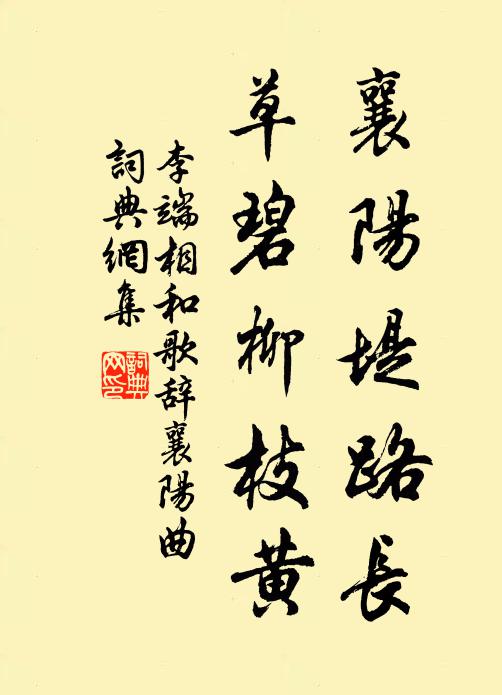 襄陽堤路長
草碧柳枝黃
李端相和歌辞襄陽曲
詞典網集
詞典
网印